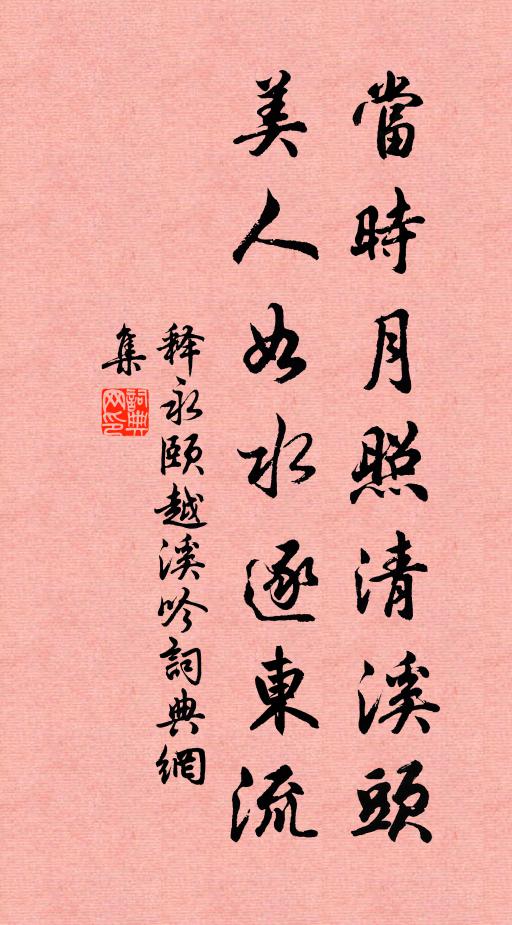 當時月照清溪頭
美人如水逐東流
释永颐越溪吟詞典網
集
詞典網印